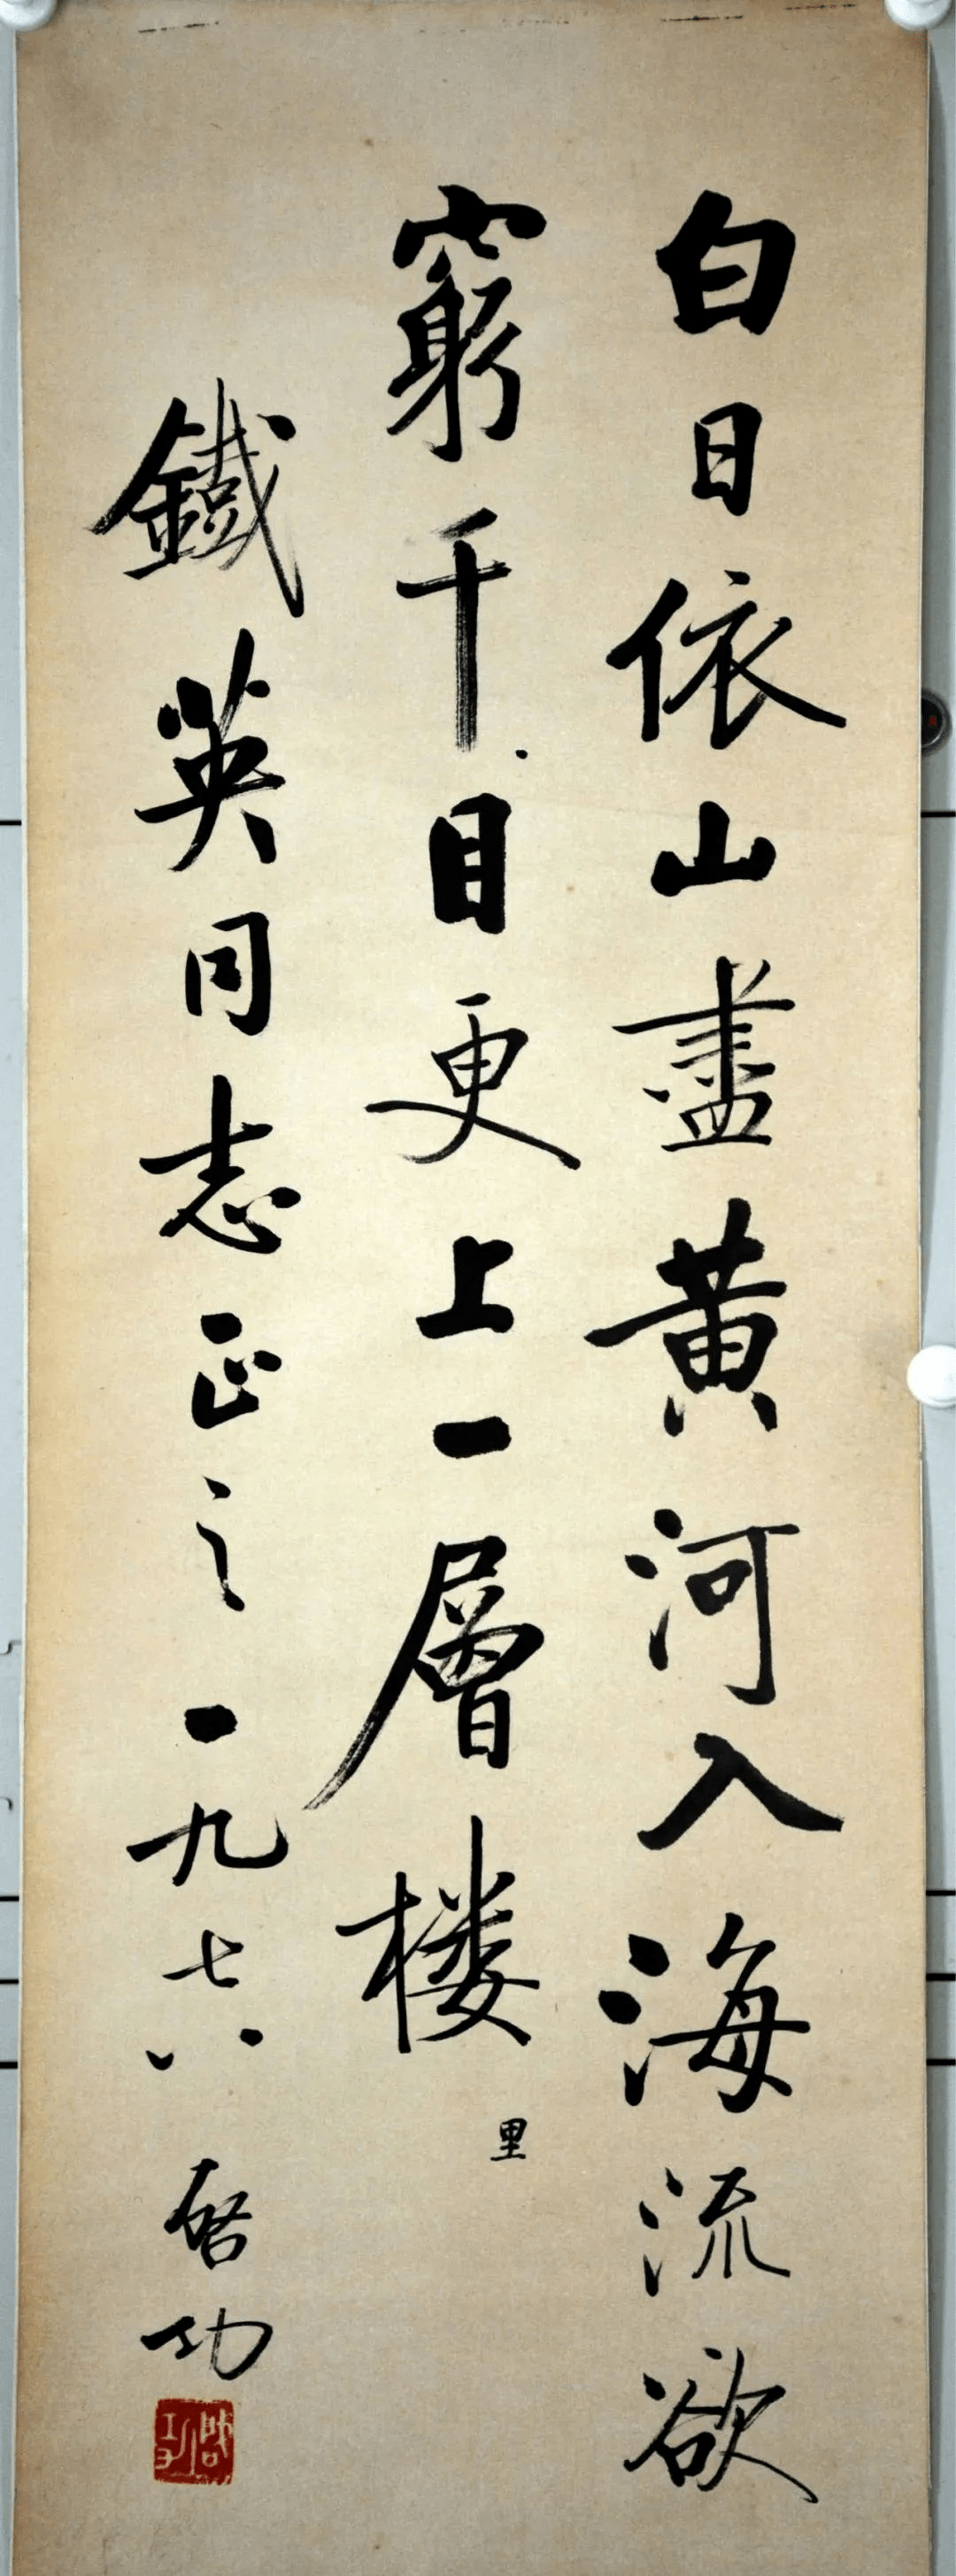 白日依山盡黄河入海流欲
窮千目更上一層楼
里
鐵英同志正之一九七八 啓功
啓功